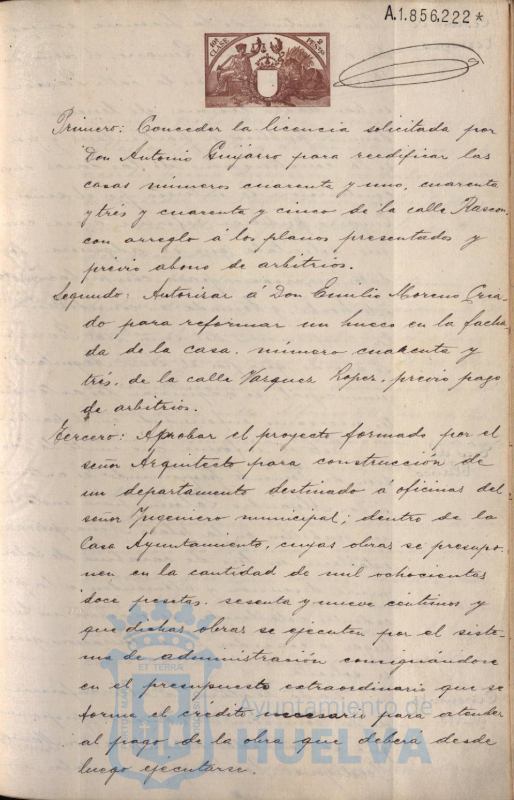 A.1.856.222*
10ª CLASE 2 PESTAS
Primero: Conceder la licencia solicitada por
Don Antonio Guijarro para reedificar las
casas números cuarenta y uno, cuarenta
y tres y cuarenta y cinco de la calle Rascon,
con arreglo á los planos presentados y
prévio abono de arbitrios.
Segundo: Autorizar á Don Emilio Moreno Cria-
do para reformar un hueco en la facha-
da de la casa, número cuarenta y
trés, de la calle Vazquez Lopez, previo pago
de arbitrios.
Tercero: Aprobar el proyecto formado por el
señor Arquitecto para construcción de
un departamento destinado a oficinas del
señor Ingeniero municipal; dentro de la
Casa Ayuntamiento, cuyas obras se presupo-
nen en la cantidad de mil ochocientas
doce pesetas, sesenta y nueve céntimos y
que dichas obras se ejecuten por el siste-
ma de administración consignándose
en el presupuesto extraordinario que se
forme el crédito necesario para atender
al pago de la obra que deberá desde
luego ejecutarse.
ET TERRA
Ayuntamiento de
HUELVA